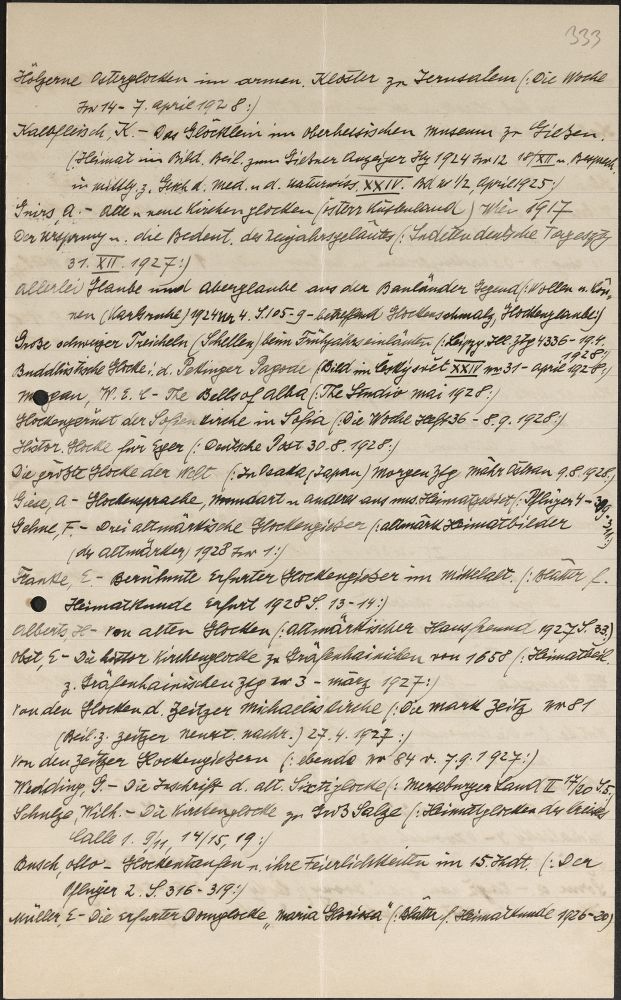 333
Hölzerne Osterglocken im armen. Kloster zu Jerusalem (: Die Woche
Nr 14 - 7. April 1928 :)
Kalbfleisch, K. - Das Glöcklein im oberhessischen Museum zu Gießen.
(: Heimat im Bild. Beil. zum Gießner Anzeiger Jhg 1924 Nr 12 18/XII u.
in mittlg. z. Gesch. d. Med. u. d. Naturwiss. XXIV. Bd. nr 1/2, April 1925 :)
Gnirs, A. - Alte u. neue Kirchenglocken (österr. Küstenland) Wien 1917
Der Ursprung u. die Bedeut. des Neujahrsgeläuts (: Sudetendeutsche Tageszg
31. XII. 1927 :)
Allerlei Glaube und Aberglaube aus der Bauländer Gegend (: Wollen u. Kön-
nen (Karlsruhe) 1924 nr 4. S. 105-9 - betreffend Glockenschmalz, Glockenglaube :)
Große schweizer Treicheln (Schellen) beim Frühjahrseinläuten (: Leipz. Ill. Ztg 4336 - 19.4.
1928 :)
Buddhistische Glocke i. d. Pekinger Pagode (Bild im Český svět XXIV nr 31 - April 1928 :)
Morgan, W. E. C - The Bells of Alba (: The Studio mai 1928 :)
Glockengerüst der Sofienkirche in Sofia (: Die Woche Heft 36 - 8.9. 1928 :)
Histor. Glocke für Eger (: Deutsche Post 30.8. 1928 :)
Die größte Glocke der Welt. (: In Osaka, Japan) Morgenztg Mähr Ostrau 9.8.1928 :)
Giese, A - Glockensprache, Mundart u. anderes aus uns. Heimatgebiet (: Pflüger 4 -
Gehne, F. - Drei altmärkische Glockengießer (: altmärk Heimatbilder
(der Altmärker, 1928 Nr 1 :)
Franke, E. - Berühmte Erfurter Glockengießer im Mittelalt. (: Blätter f.
Heimatkunde Erfurt 1928 S. 13-14 :)
Alberts, H - Von alten Glocken (: Altmärkischer Hausfreund 1927 S. 33 :)
Obst, E - Die histor Kirchenglocke zu Gräfenhainichen von 1658 (: Heimatbeil.
z. Gräfenhainischen Ztg nr 3 - März 1927 :)
Von den Glocken d. Zeitzer Michaeliskirche (: Die Mark Zeitz nr 81
(Beil. z. Zeitzer neuest. Nachr.) 27. 4. 1927 :)
Von den Zeitzer Glockengießern (: ebenda nr 84 v. 7.9. 1927 :)
Wedding, G. - Die Inschrift d. alt. Sixtiglocke (: Merseburger Land II 17/20 S. 5.
Schulze, Wilh. - Die Kirchenglocke zu Groß Salze (: Heimatglocken des Kreises
Calbe 1. 9/11, 14/15, 19 :)
Busch, Otto - Glockentaufen u. ihre Feierlichkeiten im 15. Jhdt. (: Der
Pflüger 2. S. 316-319 :)
Müller, E - Die Erfurter Domglocke „Maria Gloriosa" (: Blätter f. Heimatkunde 1926-20)